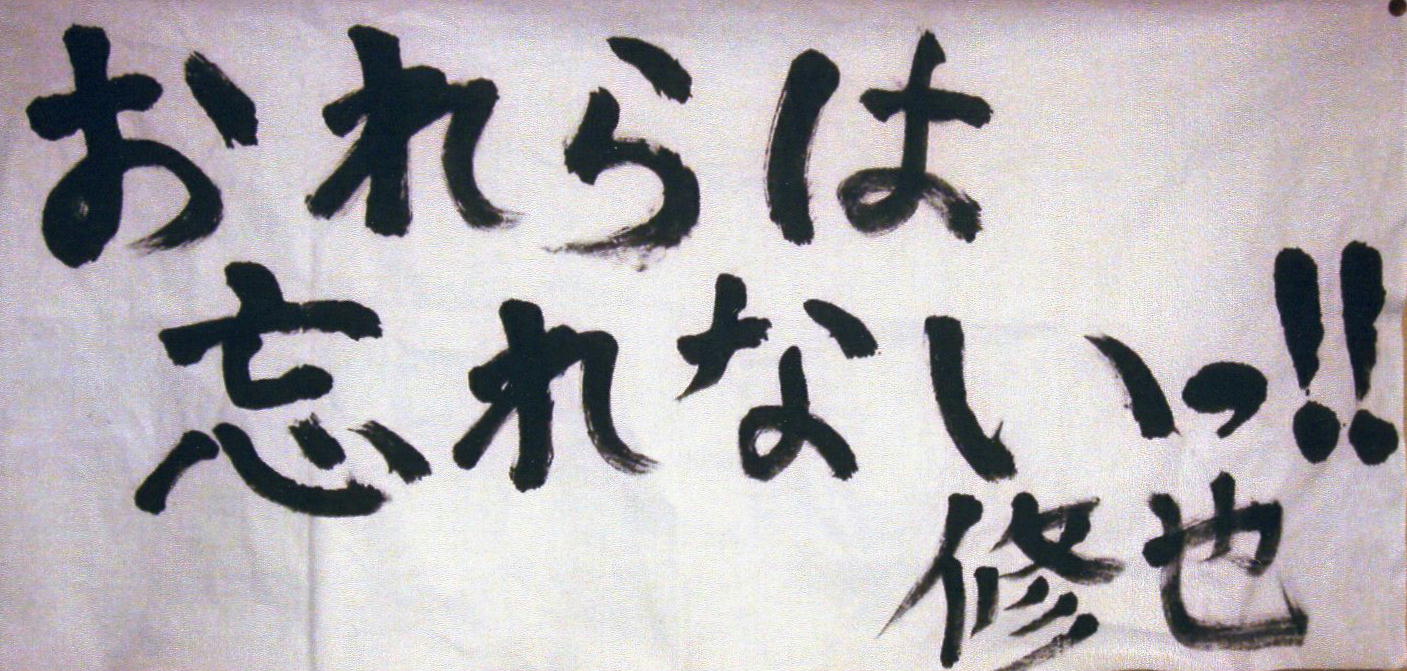 おれらは
忘れないっ!!
修也